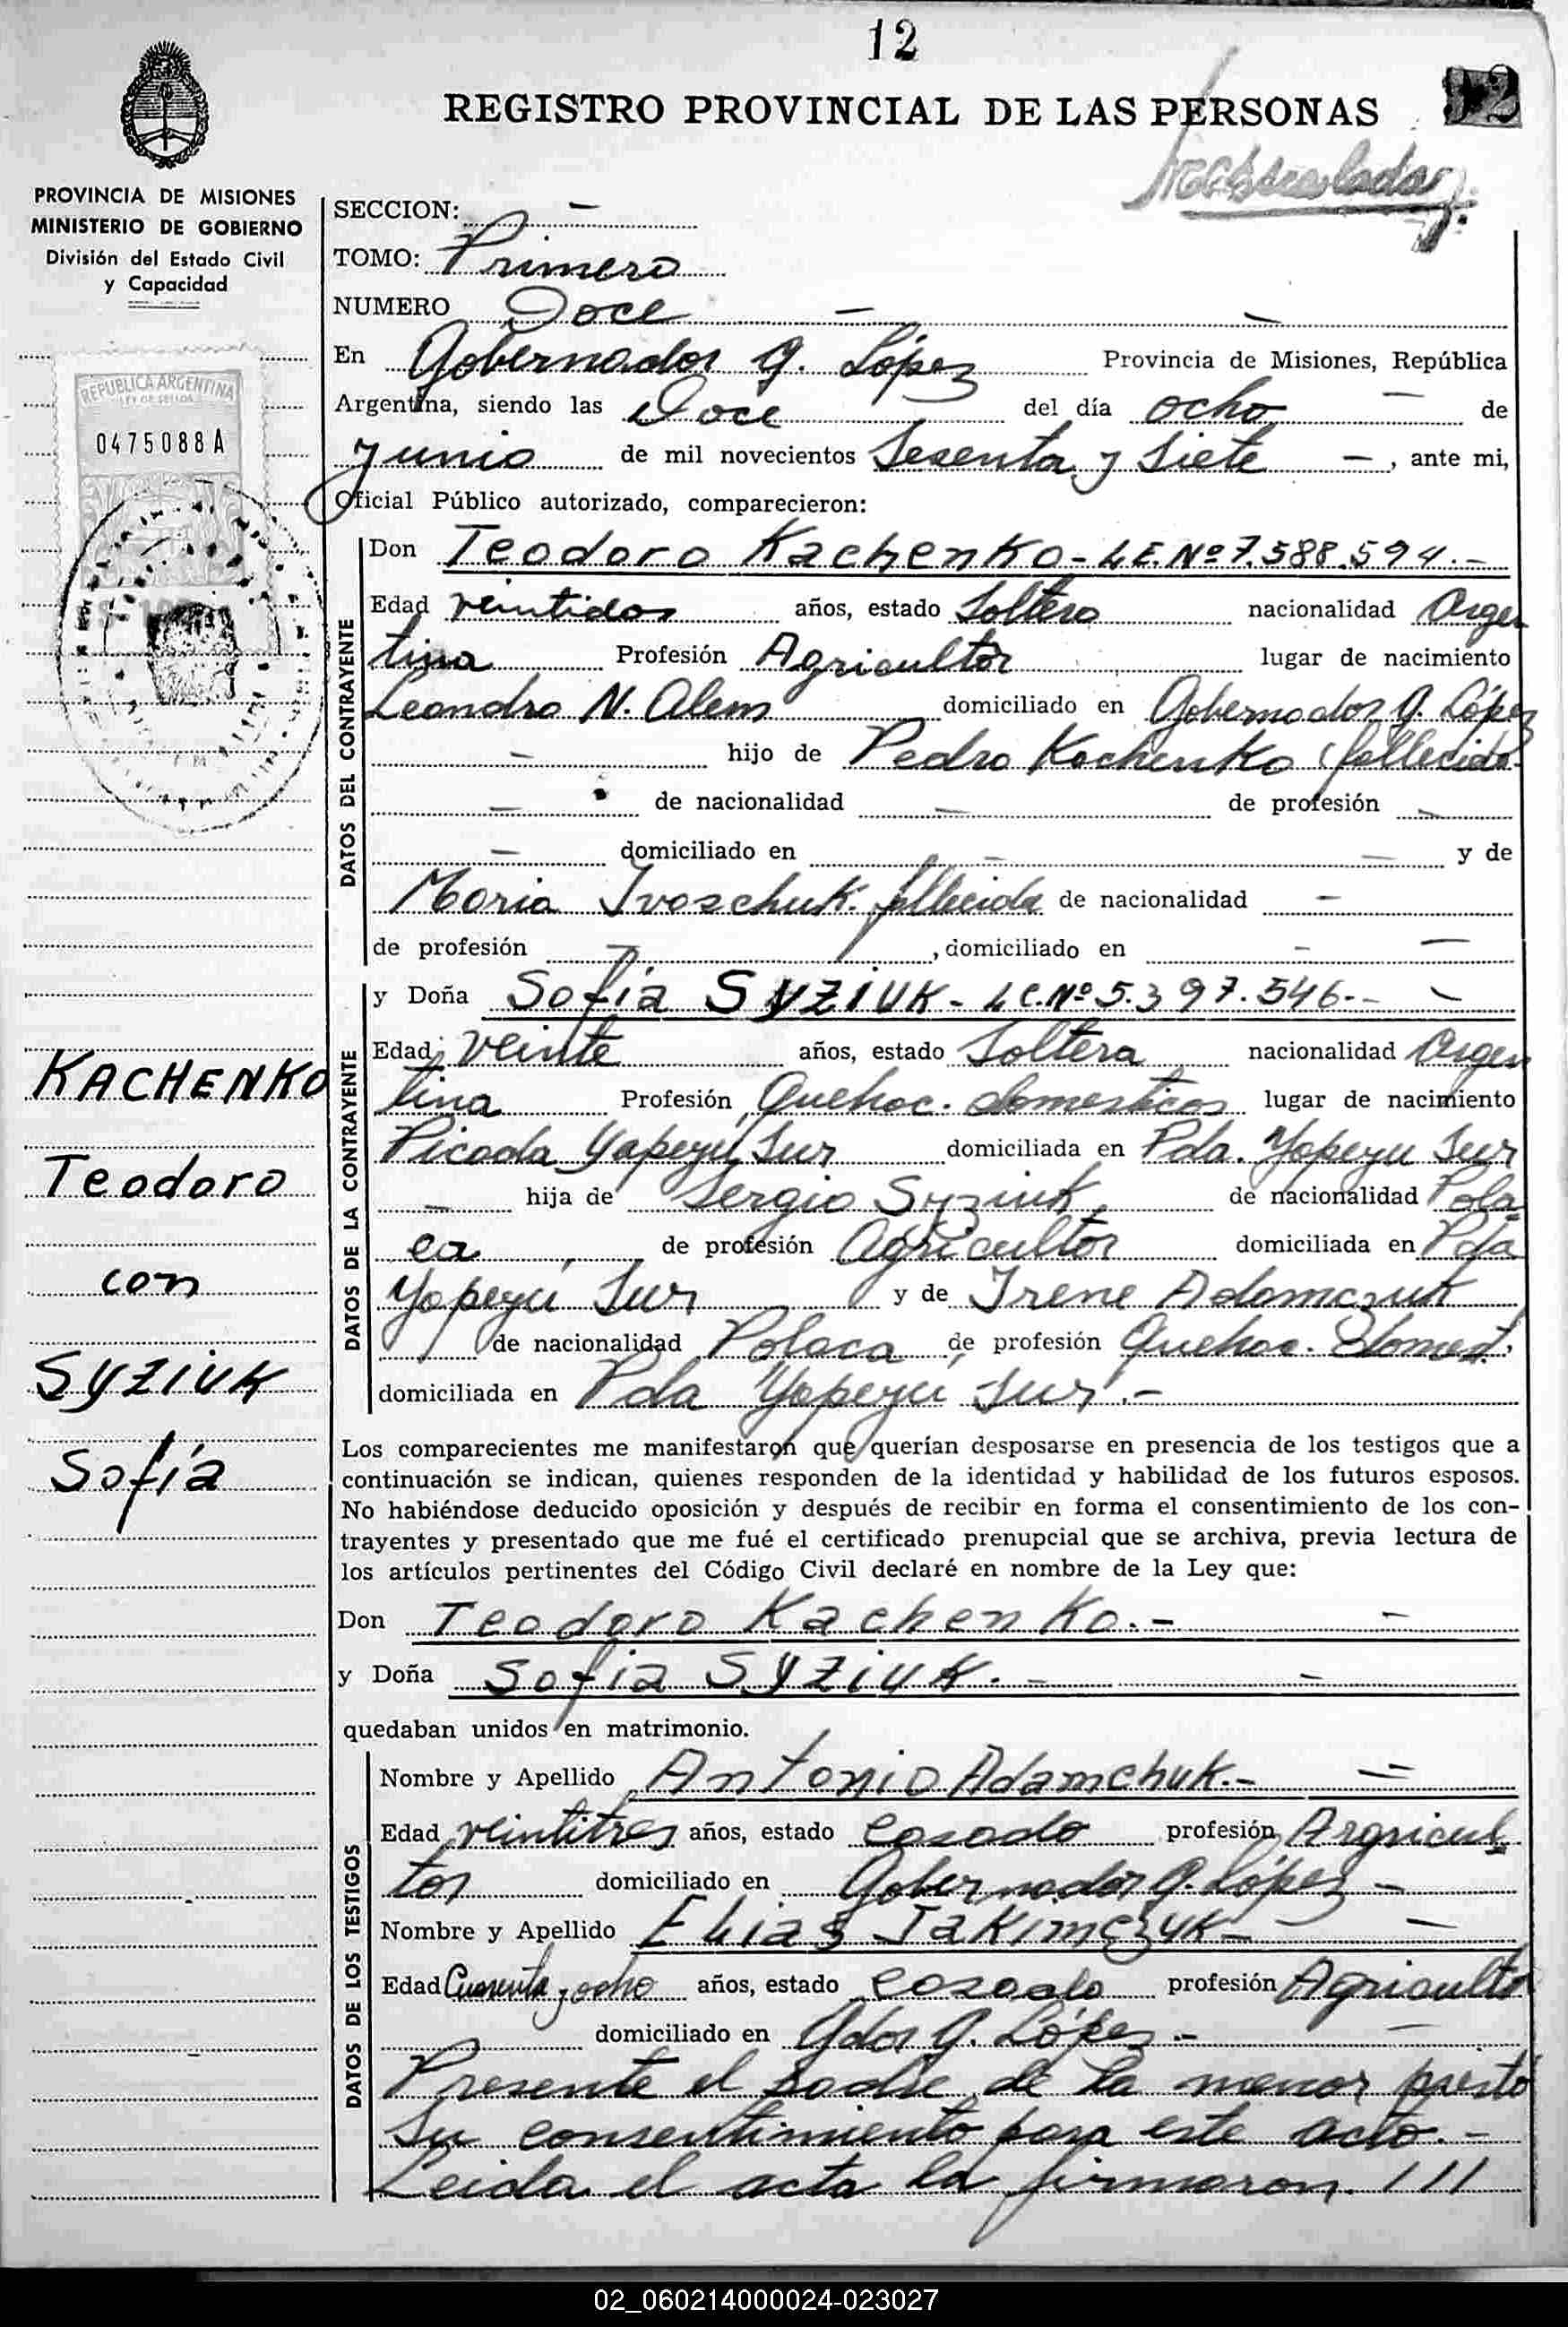 12
REGISTRO PROVINCIAL DE LAS PERSONAS
PROVINCIA DE MISIONES
MINISTERIO DE GOBIERNO
División del Estado Civil
y Capacidad
REPUBLICA ARGENTINA
LEY DE SELLOS
0475088A
KACHENKO
Teodoro
con
SYZIUK
Sofía
SECCION: —
TOMO: Primero
NUMERO Doce — —
En Gobernador G. López Provincia de Misiones, República
Argentina, siendo las Doce del día ocho — de
junio de mil novecientos Sesenta y Siete —, ante mi,
Oficial Público autorizado, comparecieron:
DATOS DEL CONTRAYENTE
Don Teodoro Kachenko - L.E. Nº 7.588.594.—
Edad veintidos años, estado Soltero nacionalidad Argen
tina Profesión Agricultor lugar de nacimiento
Leandro N. Alem domiciliado en Gobernador G. López
— hijo de Pedro Kachenko (fallecido
— de nacionalidad — de profesión —
— domiciliado en — — y de
Maria Ivaschuk. fallecida de nacionalidad —
de profesión —, domiciliado en — —
DATOS DE LA CONTRAYENTE
y Doña Sofía SYZIUK - L.C. Nº 5.397.546.— —
Edad veinte años, estado Soltera nacionalidad Argen
tina Profesión Quehac. domesticos lugar de nacimiento
Picada Yapeyú Sur domiciliada en Pda. Yapeyu Sur
— hija de Sergio Syziuk, de nacionalidad Pola
ca, de profesión Agricultor domiciliada en Pda
Yapeyú Sur y de Irene Adamczuk
de nacionalidad Polaca, de profesión Quehac. Domest.
domiciliada en Pda Yapeyú Sur.—
Los comparecientes me manifestaron que querían desposarse en presencia de los testigos que a
continuación se indican, quienes responden de la identidad y habilidad de los futuros esposos.
No habiéndose deducido oposición y después de recibir en forma el consentimiento de los con-
trayentes y presentado que me fué el certificado prenupcial que se archiva, previa lectura de
los artículos pertinentes del Código Civil declaré en nombre de la Ley que:
Don Teodoro Kachenko.— —
y Doña Sofia SYZIUK.— —
quedaban unidos en matrimonio.
DATOS DE LOS TESTIGOS
Nombre y Apellido Antonio Adamchuk.— —
Edad veintitres años, estado casado profesión Argricul
tor domiciliado en Gobernador G. López —
Nombre y Apellido Elias Jakimczyk — —
Edad Cuarenta y ocho años, estado casado profesión Agricultor
domiciliado en Gdor G. López.— —
Presente el padre de la menor prestó
su consentimiento para este acto.—
Leida el acta la firmaron ///
02_060214000024-023027